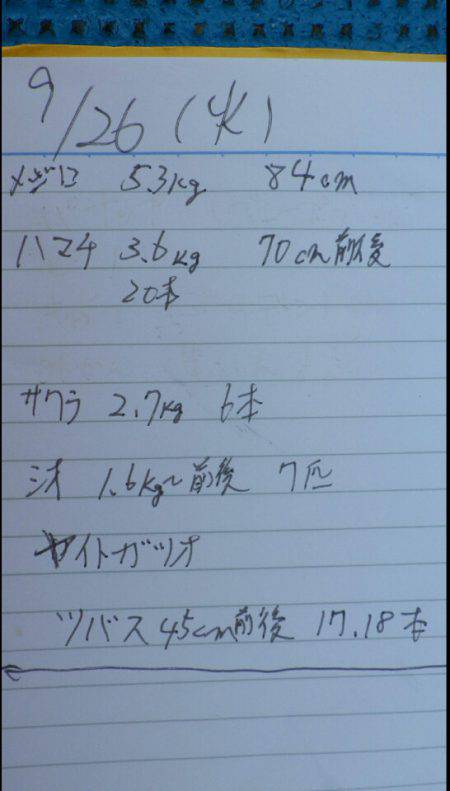 9/26(火)
メジロ 5.3kg 84cm
ハマチ 3.6kg 70cm前後
20本
サワラ 2.7kg 6本
シオ 1.6kg〜前後 7匹
ヤイトガツオ
ツバス 45cm前後 17.18本